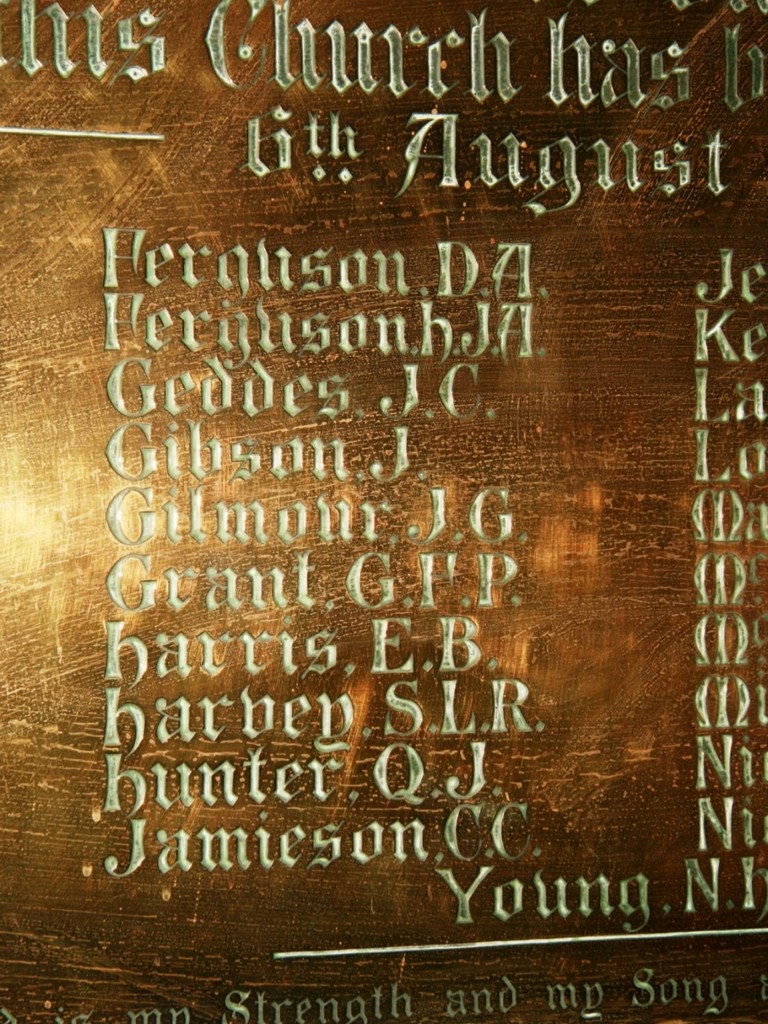 this Church has
6th August
Ferguson, D.A.
Ferguson, h.J.A.
Geddes, J.C.
Gibson, J.
Gilmour, J.G.
Grant, G.F.P.
harris, E.B.
harvey, S.L.R.
hunter, Q.J.
Jamieson, C.C.
Je
Ke
La
Lo
Ma
Mc
Mc
Mi
Nic
Nic
Young, N.h
is my Strength and my Song a